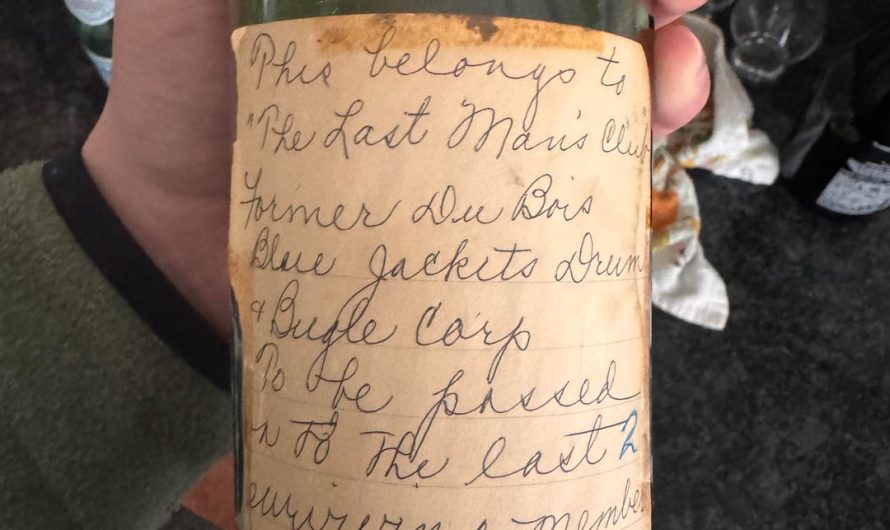 This belongs to
"The Last Man's Club"
Former Du Bois
Blue Jackets Drum
& Bugle Corp
To be passed
on to the last 2
surviving member